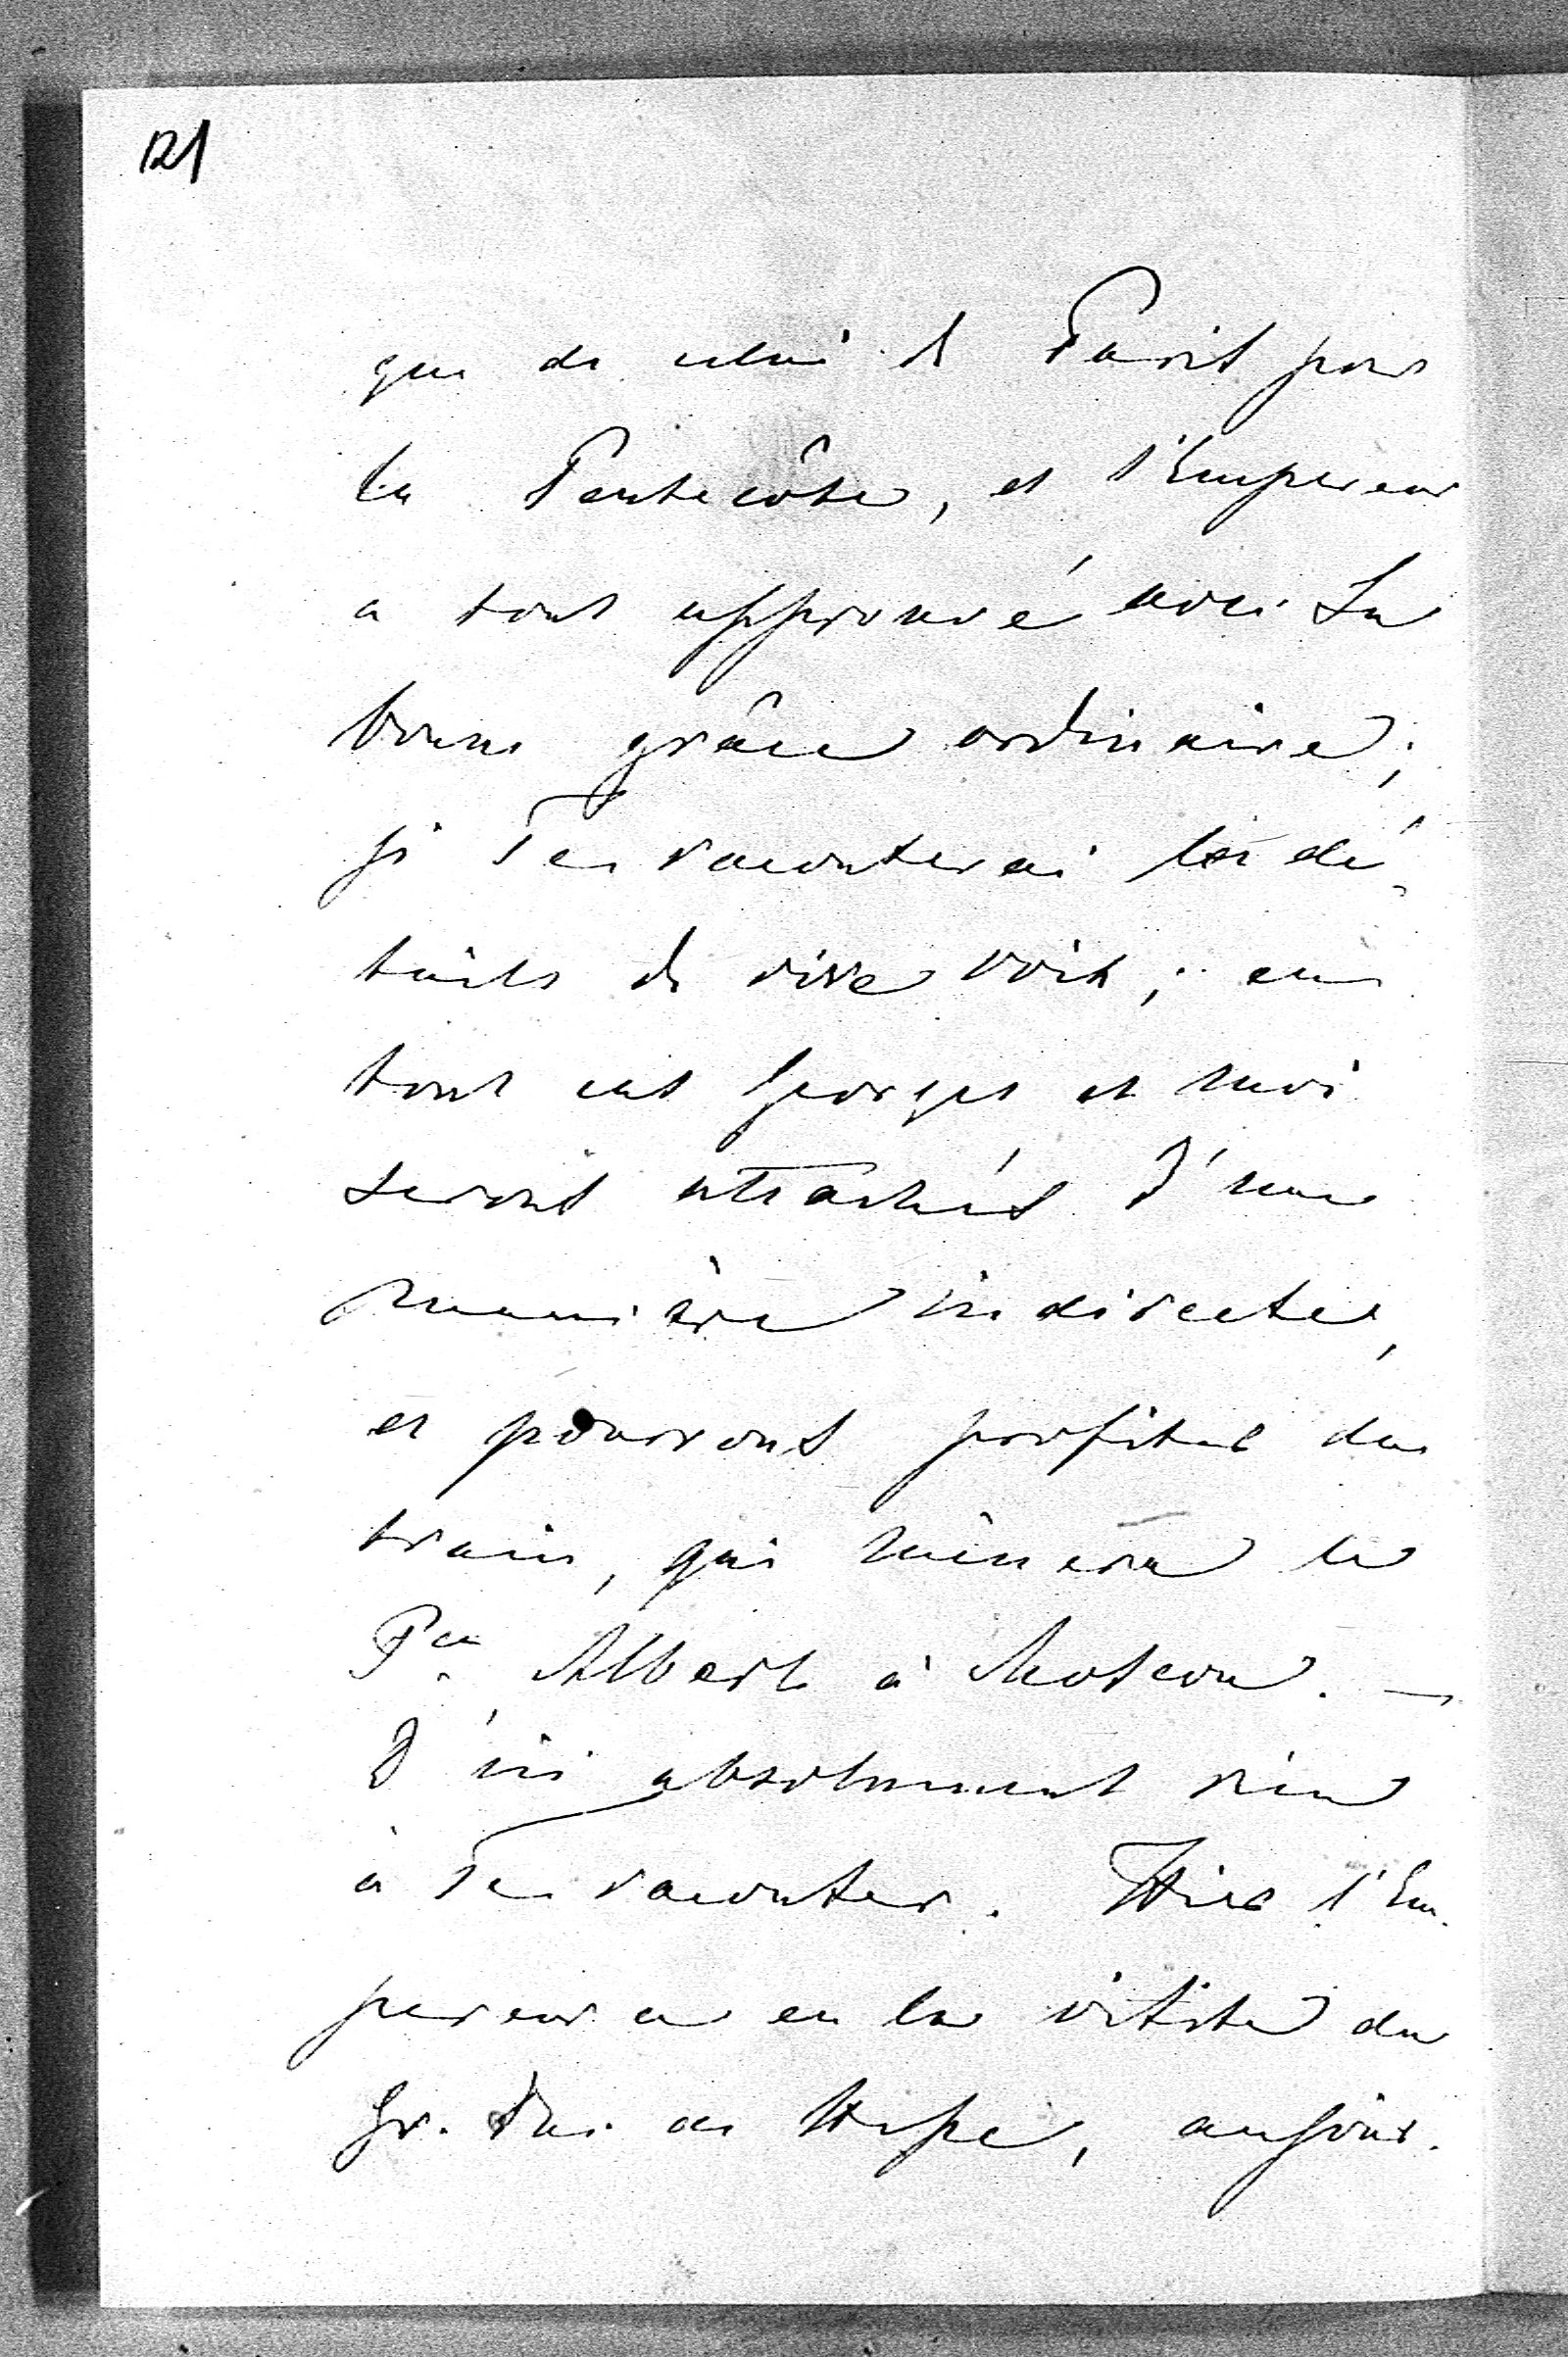 121
que de celui de Paris pour
la Pentecôte, et l'Empereur
a tout approuvé avec Sa
bonne grâce ordinaire;
je Te raconterai les dé-
tails de vive voix; en
tout cas Georges et moi
seront attachés d'une
manière indirecte,
et pourront profiter du
train, qui mènera le
Pce Albert à Moscou. —
D'ici absolument rien
à Te raconter. Hier l'Em-
pereur a eu la visite du
Gr. Duc de Hesse, aujour-